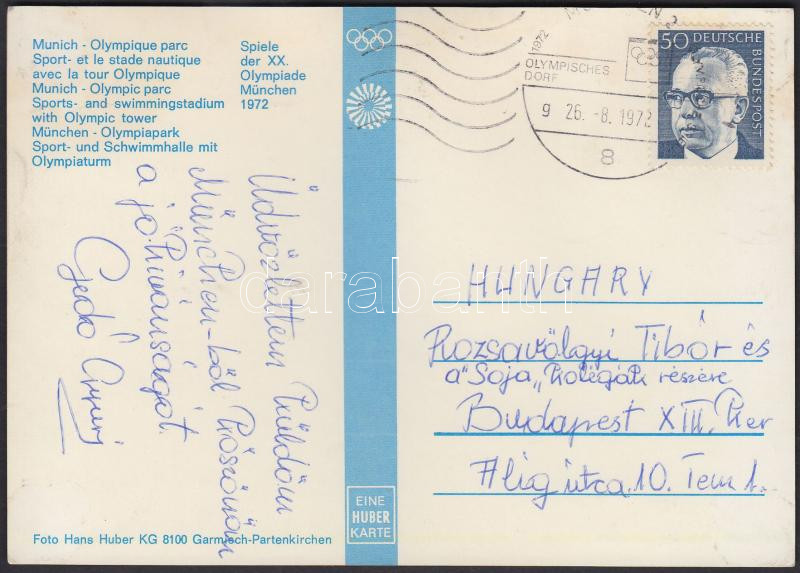 Munich - Olympique parc
Sport- et le stade nautique
avec la tour Olympique
Munich - Olympic parc
Sports- and swimmingstadium
with Olympic tower
München - Olympiapark
Sport- und Schwimmhalle mit
Olympiaturm
Spiele
der XX.
Olympiade
München
1972
1972
OLYMPISCHES
DORF
g 26.-8.1972
8
50 DEUTSCHE
BUNDESPOST
Üdvözlettem küldöm
München-ből köszönöm
a jókívánságot.
Gedó György
HUNGARY
Rozsavölgyi Tibor és
a "Soja" kollégák részére
Budapest XIII. ker
Hlig utca. 10. Tem 1.
EINE
HUBER
KARTE
Foto Hans Huber KG 8100 Garmisch-Partenkirchen
darabanth